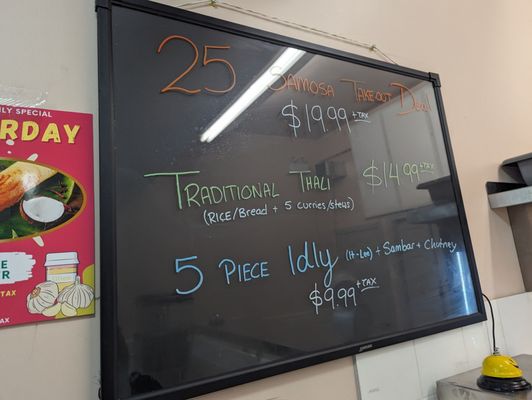 25 SAMOSA TAKEOUT DEAL
$19.99 +TAX
TRADITIONAL THALI $14.99 +TAX
(RICE/Bread + 5 curries/stews)
5 PIECE Idly (It-Lee) + Sambar + Chutney
$9.99 +TAX
LY SPECIAL
RDAY
E
R
TAX
AX